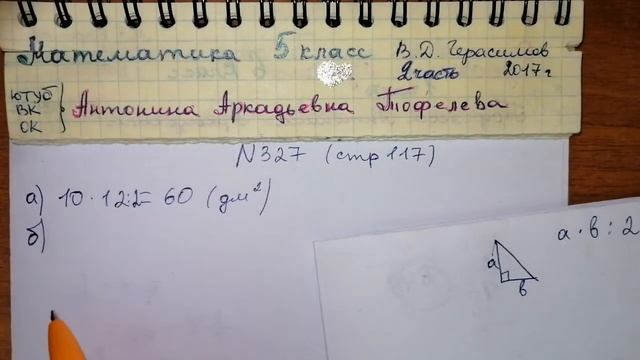 Математика 5 класс В.Д. Герасимов
2 часть 2017 г
ЮТУБ
ВК
ОК
Антонина Аркадьевна Тофелева
N 327 (стр 117)
а) 10 · 12:2 = 60 (дм²)
б)
a · b : 2
a
b